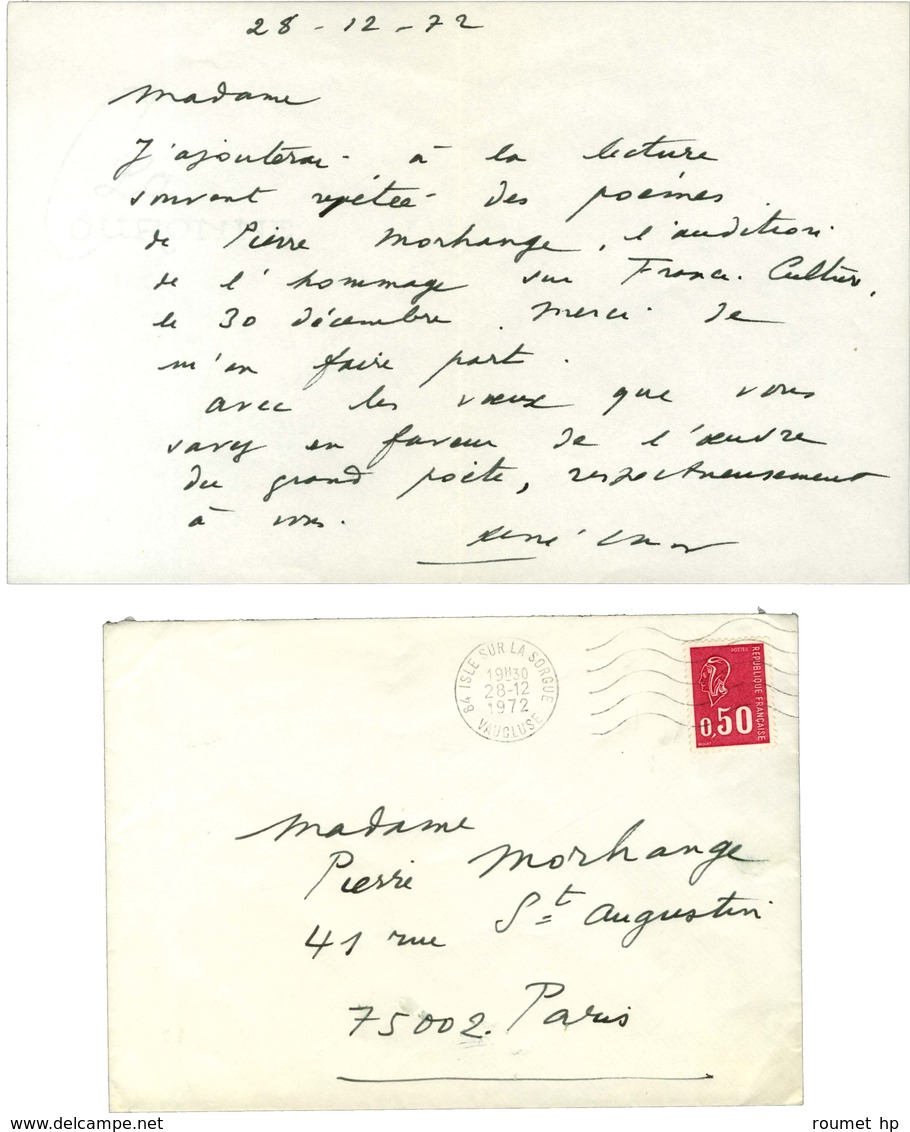 28-12-72
Madame
J'ajouterai à la lecture
souvent répétée des poèmes
de Pierre Morhange, l'audition
de l'hommage sur France-Culture,
le 30 décembre. Merci de
m'en faire part.
avec les vœux que vous
savez en faveur de l'œuvre
du grand poète, respectueusement
à vous.
René Char
84 ISLE SUR LA SORGUE
19H30
28-12
1972
VAUCLUSE
POSTES
REPUBLIQUE FRANÇAISE
0,50
Madame
Pierre Morhange
41 rue St Augustin
75002. Paris
delcampe.net
roumet hp